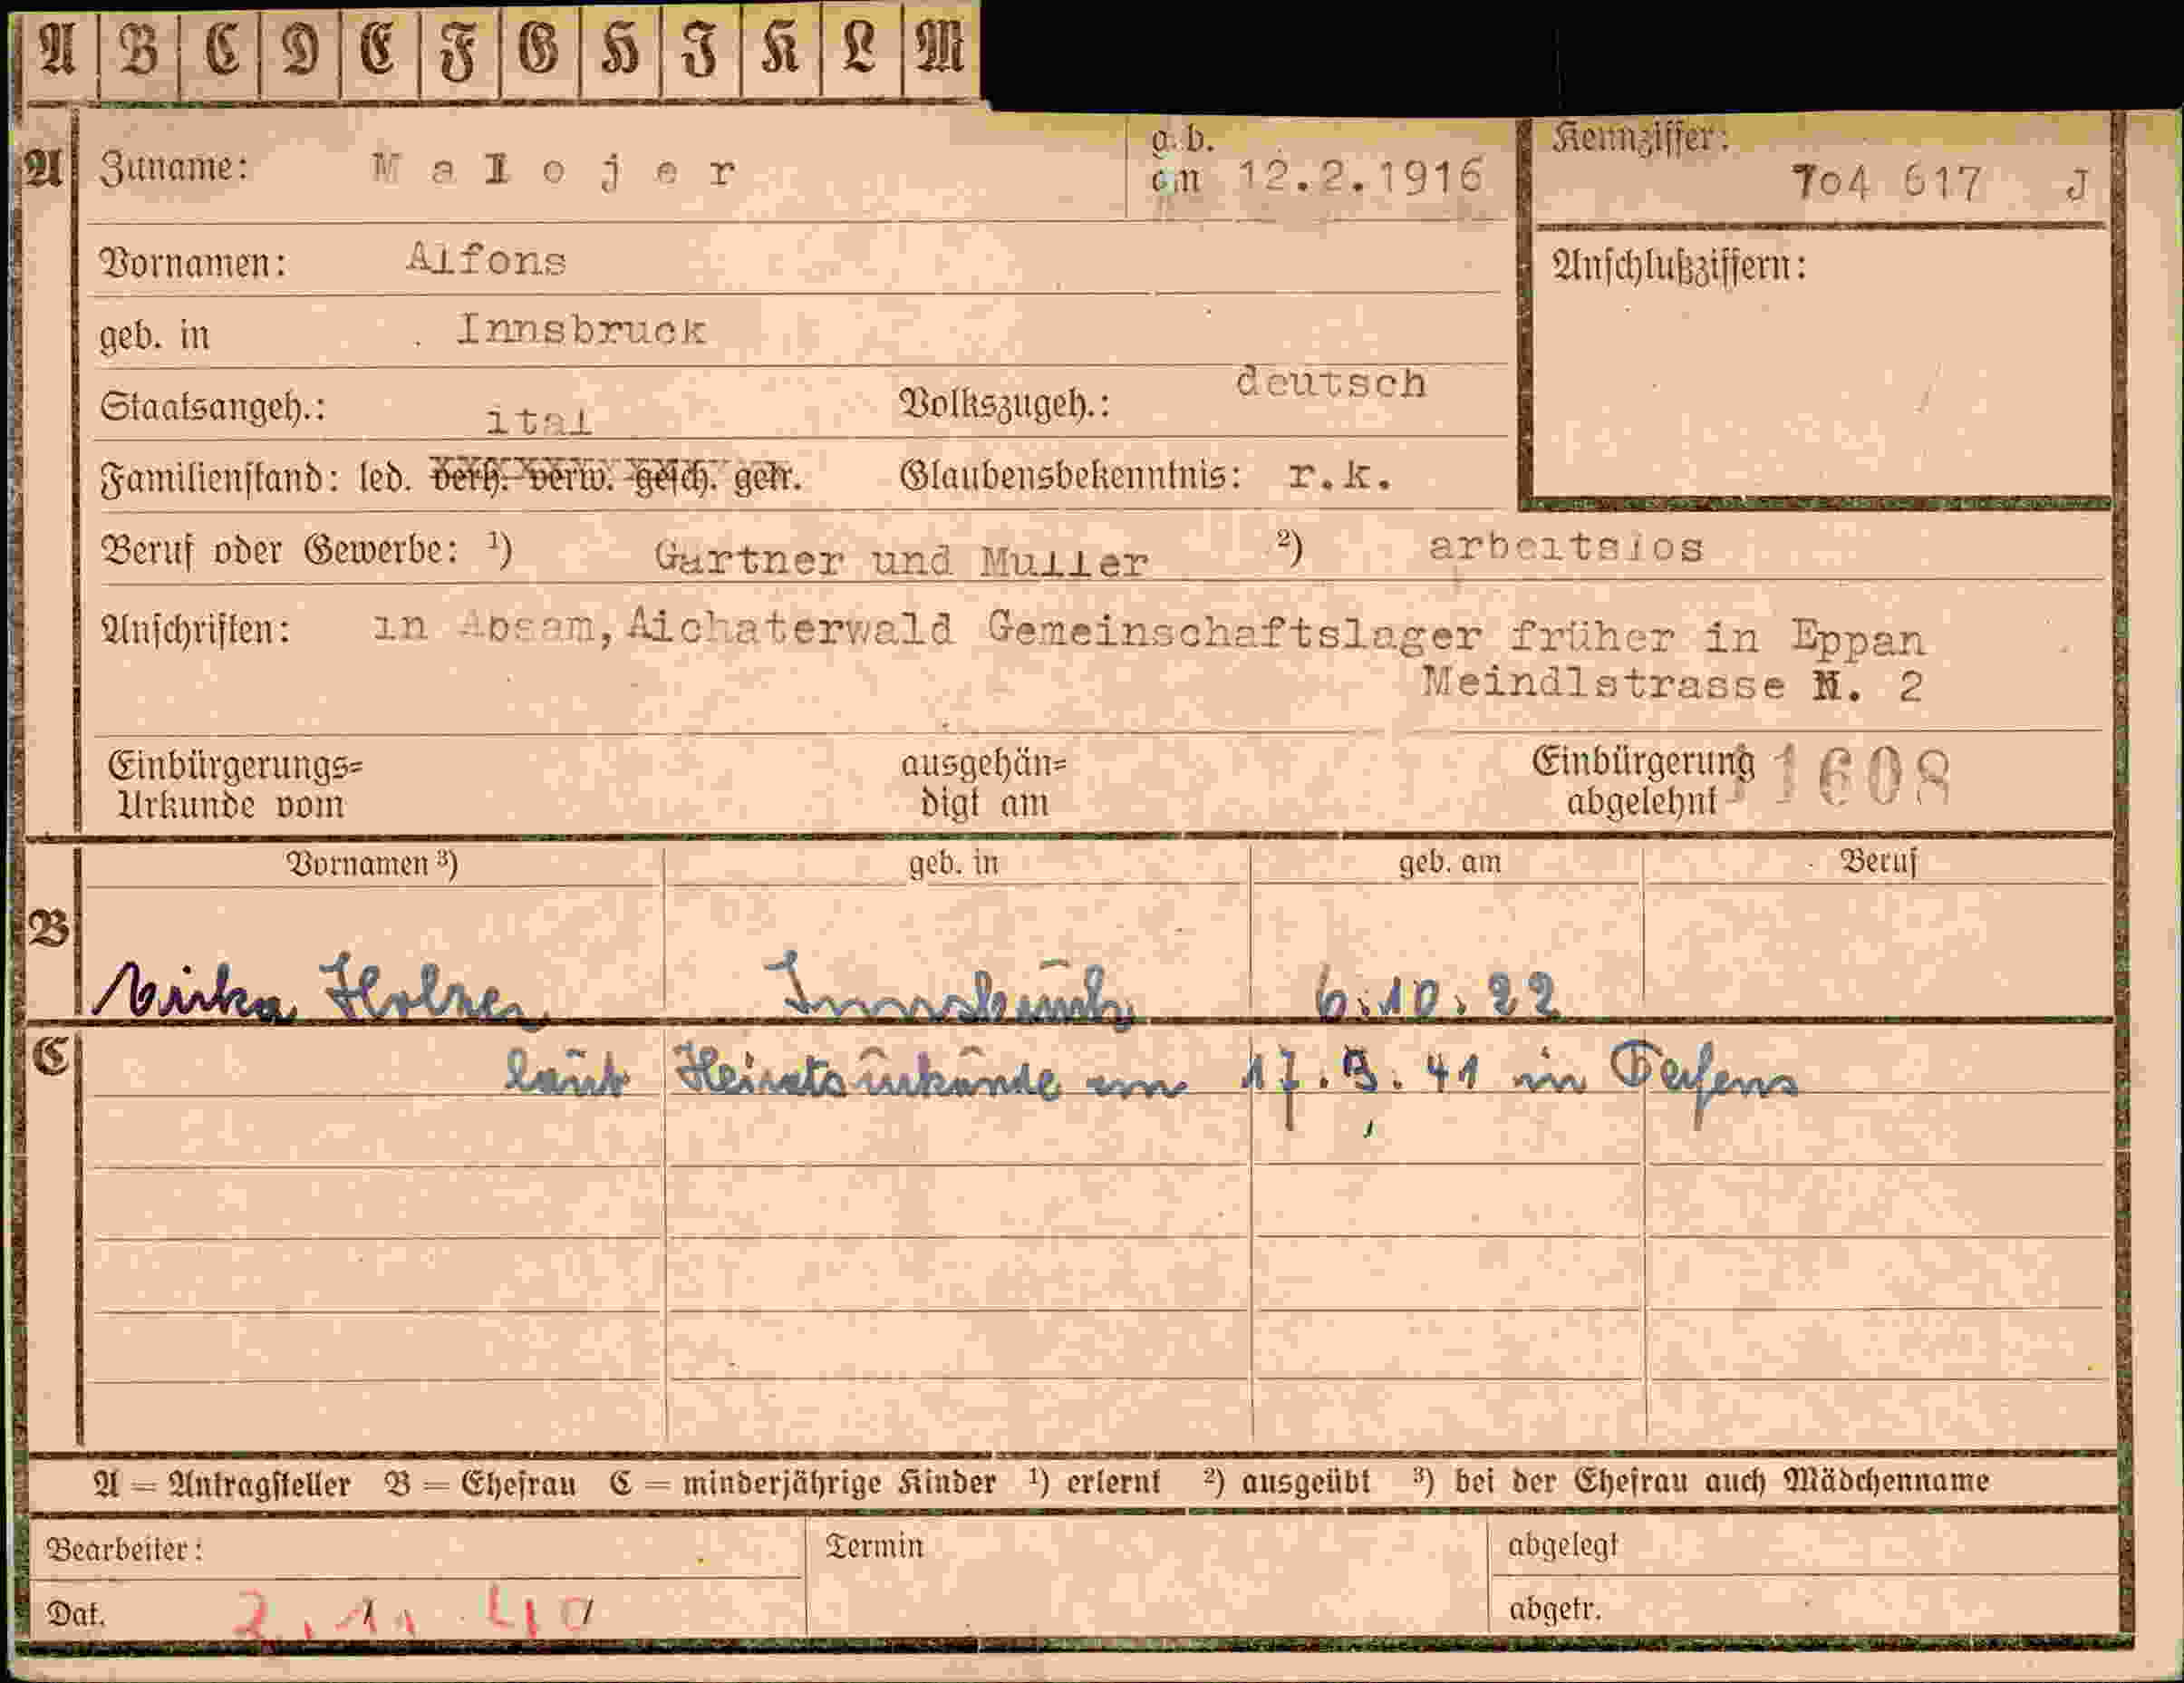 A B C D E F G H I K L M
A Zuname: Malojer geb. am 12.2.1916 Kennziffer: 704 617 J
Vornamen: Alfons Anschlußziffern:
geb. in Innsbruck
Staatsangeh.: ital Volkszugeh.: deutsch
Familienstand: led. verh. verw. gesch. getr. Glaubensbekenntnis: r.k.
Beruf oder Gewerbe: ¹) Gartner und Muller ²) arbeitslos
Anschriften: in Absam, Aichaterwald Gemeinschaftslager früher in Eppan
Meindlstrasse N. 2
Einbürgerungs= ausgehän= Einbürgerung 11608
Urkunde vom digt am abgelehnt
Vornamen ³) geb. in geb. am Beruf
B
Holzer Innsbruck 6.10.22
C laut Heiratsurkunde vom 17.9.41 in
A = Antragsteller B = Ehefrau C = minderjährige Kinder ¹) erlernt ²) ausgeübt ³) bei der Ehefrau auch Mädchenname
Bearbeiter: Termin abgelegt
Dat. 2.11.40 abgetr.